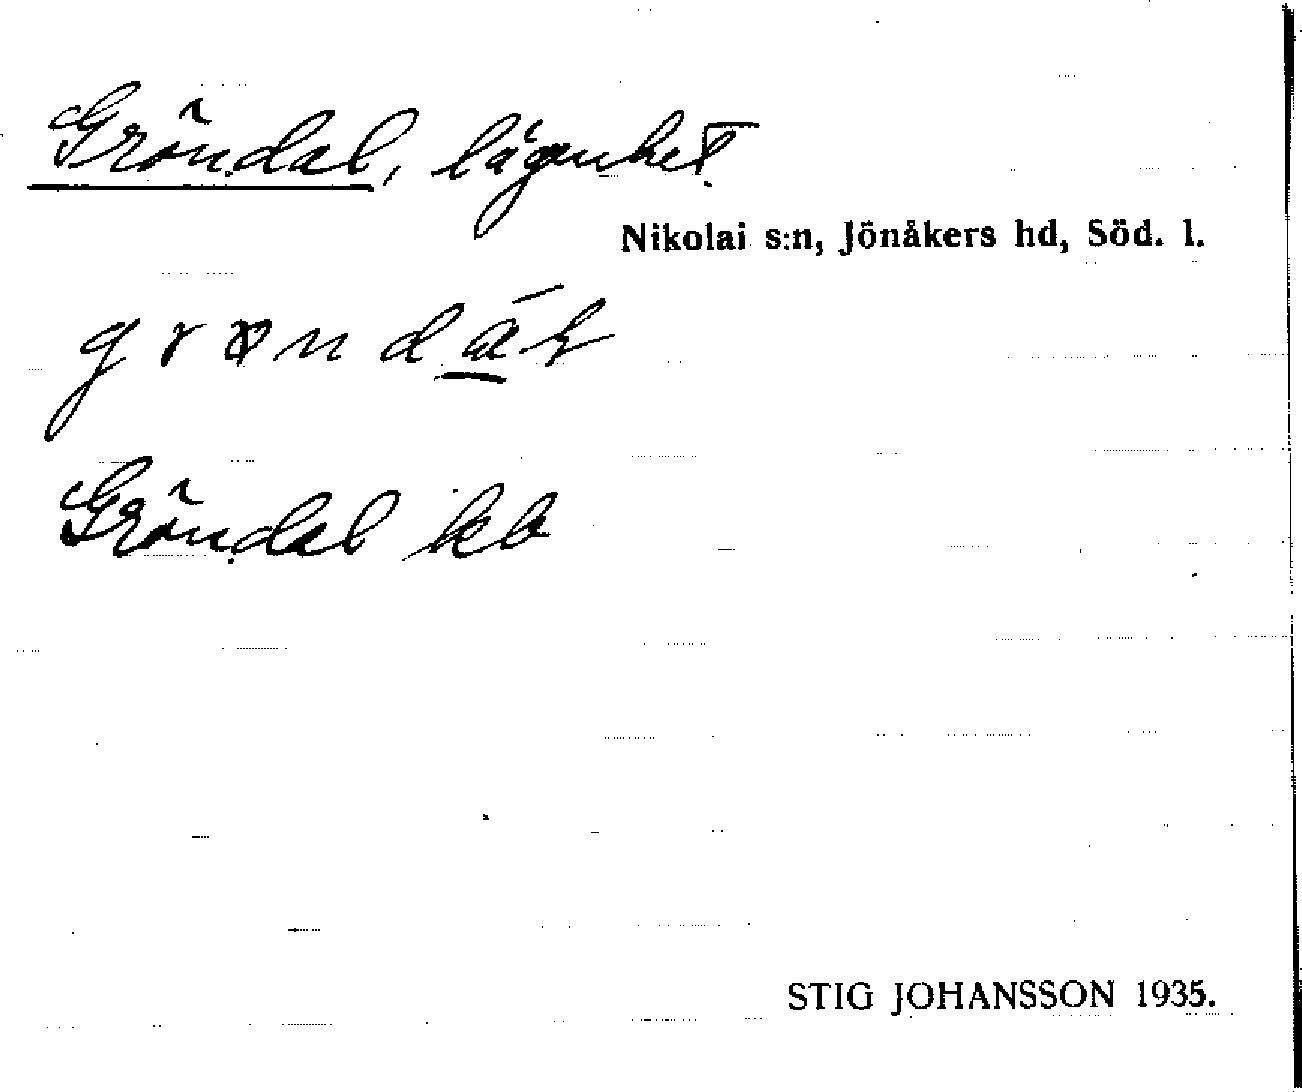 Gröndal, lägenhet
Nikolai s:n, Jönåkers hd, Söd. l.
Gröndal kb
STIG JOHANSSON 1935.